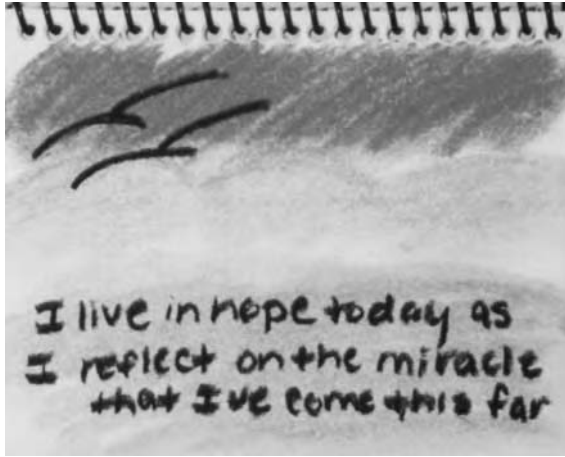 I live in hope today as
I reflect on the miracle
that I've come this far